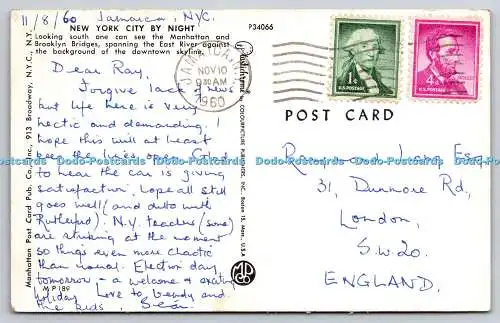 11/8/60 Jamaica, NYC.
NEW YORK CITY BY NIGHT
Looking south one can see the Manhattan and
Brooklyn Bridges, spanning the East River against
the background of the downtown skyline.
P34066
Dear Ray,
Forgive lack of news
but life here is very
hectic and demanding; I
hope this will at least
keep the lines open. Glad
to hear the car is giving
satisfaction, hope all still
goes well (and ditto with
Rutherford). N.Y. teachers (some)
are striking at the moment
so things even more chaotic
than normal. Election day
tomorrow - a welcome & exciting
holiday. Love to Wendy and
the kids,
Manhattan Post Card Pub. Co., Inc., 913 Broadway, N.Y.C., N.Y.
MP189
Plastichrome
by COLOURPICTURE PUBLISHERS, INC., Boston 15, Mass., U.S.A.
JAMAICA
NOV 10
9 30 AM
1960
1¢
U.S. POSTAGE
4¢
U.S. POSTAGE
POST CARD
Dodo-Postcards Dodo-Postcards Dodo-Postcards Dodo-Postcards Dodo-Postcards
Raymond Esq.
31, Dunmore Rd,
London,
S.W.20.
ENGLAND.